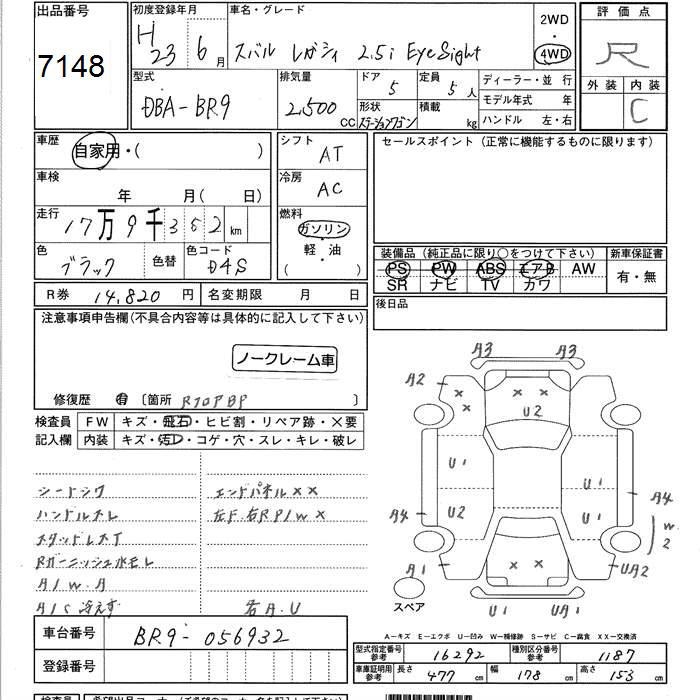 出品番号
7148
初度登録年月
H 23 6月
車名・グレード
スバル レガシィ 2.5i EyeSight
2WD
・
4WD
評価点
R
外装 内装
C
型式
DBA-BR9
排気量
2,500 CC
ドア 5
定員 5人
形状 ステーションワゴン
積載 kg
ディーラー・並 行
モデル年式 年
ハンドル 左・右
車歴
自家用・( )
車検
年 月( 日)
走行
17万9千352 km
色
ブラック
色替
色コード
D4S
シフト
AT
冷房
AC
燃料
ガソリン
軽・油
( )
セールスポイント(正常に機能するものに限ります)
装備品(純正品に限り○をつけて下さい)
PS PW ABS エアB AW
SR ナビ TV カワ
新車保証書
有・無
R券 14,820 円
名変期限 月 日
後日品
注意事項申告欄(不具合内容等は具体的に記入して下さい)
ノークレーム車
修復歴 有 〔箇所 〕
検査員
記入欄
FW キズ・飛石・ヒビ割・リペア跡・×要
内装 キズ・汚レ・コゲ・穴・スレ・キレ・破レ
シートシワ
ハンドルスレ
Rガーニッシュ水モレ
A/W.A
A/C冷えず
エンドパネル××
左F.右RP/W×
右A.U
A3 A3
A2
U2
U1
U1
U2
U1
A4
A4
W2
A1
UA2
U1
UA1
スペア
A−キズ E−エクボ U−凹み W−補修跡 S−サビ C−腐食 XX−交換済
車台番号
BR9-056932
登録番号
型式指定番号
参考
16292
種別区分番号
参考
1187
車庫証明用
参考
長さ 477 cm
幅 178 cm
高さ 153 cm